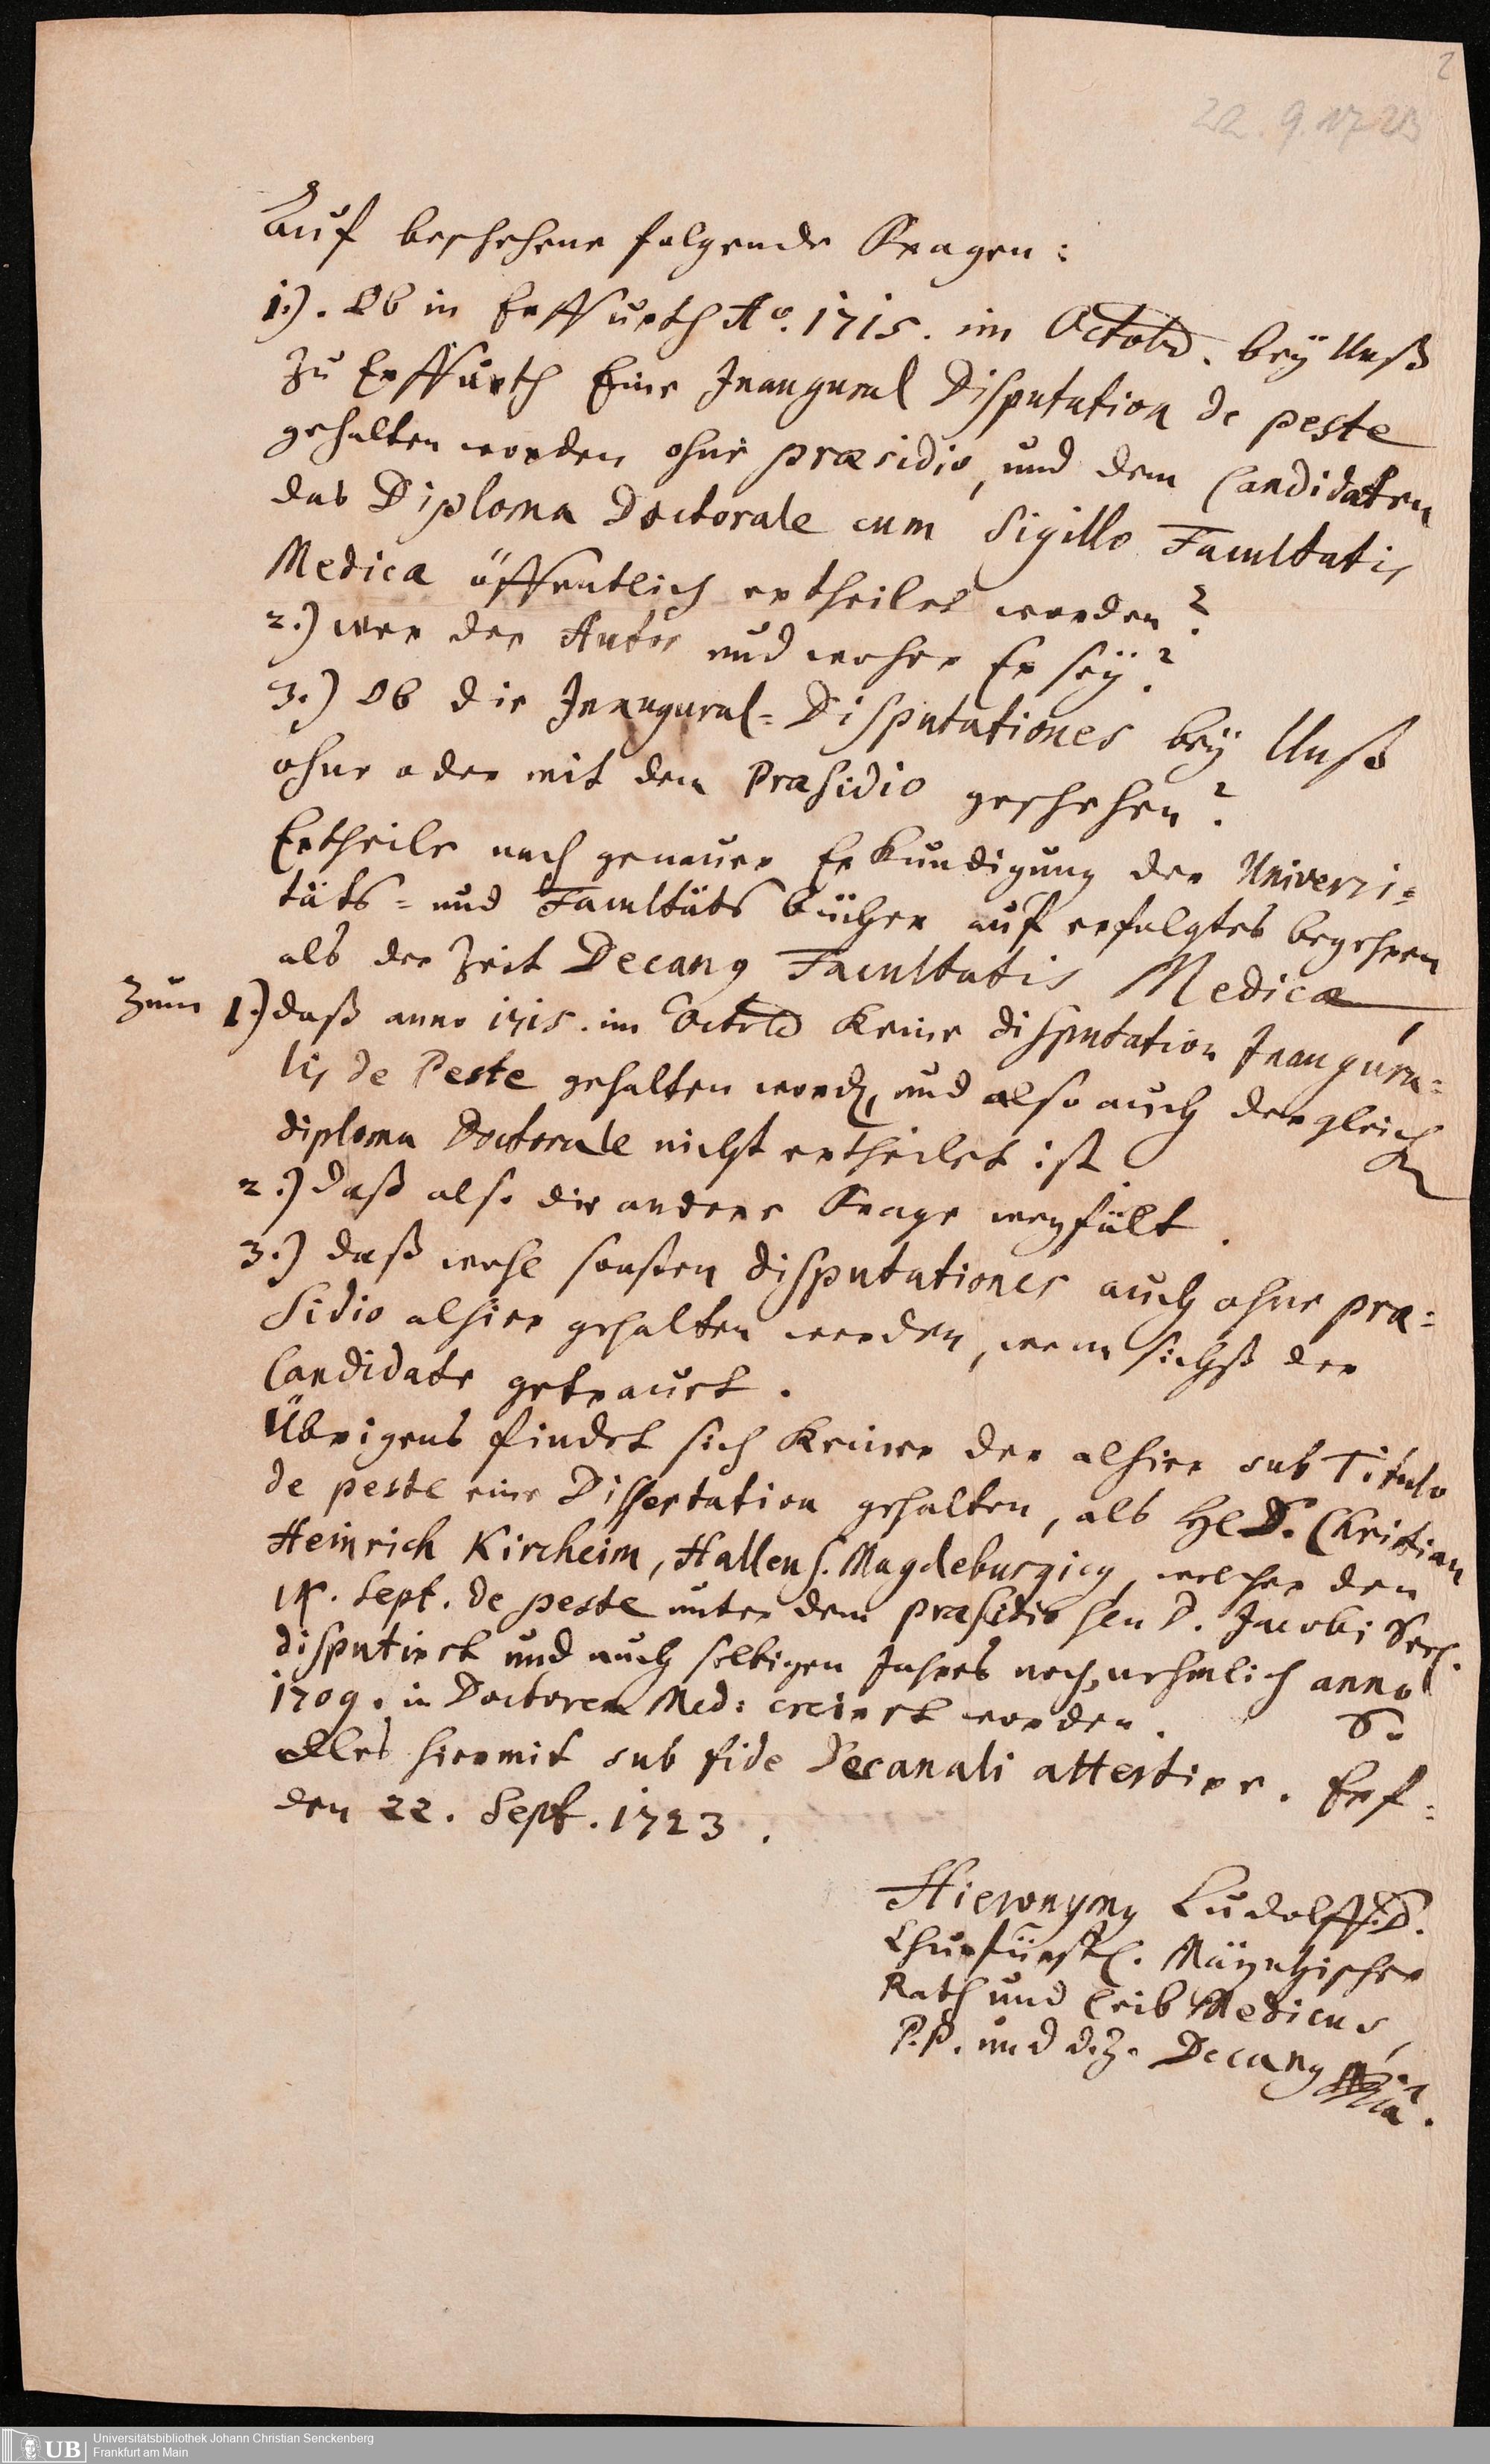 2
22. 9. 1723
Auf beschehene folgende Fragen:
1.). Ob in Erffurth Ao. 1715. im Octobr. beÿ Unß
zu Erffurth Eine Inaugural Disputation de peste
gehalten worden ohne præsidio, und dem Candidaten
das Diploma Doctorale cum Sigillo Facultatis
Medicæ öffentlich ertheilet worden?
2.) wer der Autor und woher Er seÿ?
3.) Ob die Inaugural-Disputationes beÿ Unß
ohne oder mit dem Præsidio geschehen?
Ertheile nach genauer Erkundigung der Universi=
täts= und Facultäts bücher auf erfolgtes begehren
als der Zeit Decanus Facultatis Medicæ,
Zum 1.) daß anno 1715. im Octobr keine disputation Inaugura=
lis de Peste gehalten word, und also auch dergleich
diploma Doctorale nicht ertheilet ist
2.) daß also die andere Frage wegfält.
3.) daß wohl sonsten disputationes auch ohne præ=
sidio alhier gehalten werden, wenn sichß der
Candidate getrauet.
Übrigens findet sich keiner der alhier sub Titulo
de peste eine Dissertation gehalten, als Hl D. Christian
Heinrich Kircheim, Hallens. Magdeburgicus, welcher den
14. Sept. de peste unter dem præsidio D. Jacobi
disputiret und auch selbigen Jahres noch, nehmlich anno
1709. in Doctorem Med: creiret worden.
Alles hiermit sub fide Decanali attestire. Erf=
den 22. Sept. 1723.
Hieronymus Ludolff D.
Churfürstl. Mäyntzischer
Rath und Leib Medicus,
P.P. und d.z. Decanus
UB Universitätsbibliothek Johann Christian Senckenberg
Frankfurt am Main